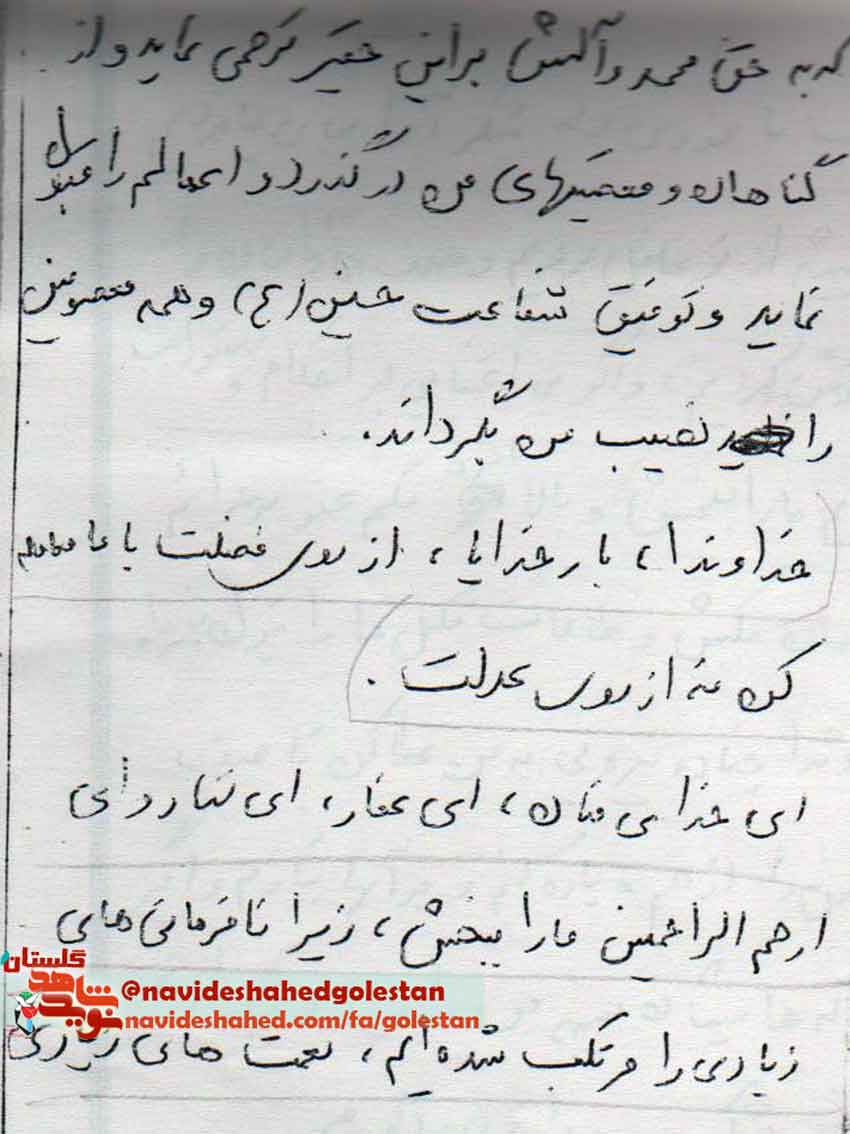 که به حق محمد و آلش بر این حقیر ترحمی نماید و از
گناهان و معصیتهای من در گذرد و اعمالم را قبول
نماید و توفیق شفاعت حسین (ع) و همه معصومین
را نصیب من بگرداند.
خداوندا، بار خدایا، از روی فضلت با ما معامله
کن نه از روی عدلت.
ای خدای منان، ای غفار، ای ستار و ای
ارحم الراحمین ما را ببخش، زیرا نافرمانی های
زیادی را مرتکب شده ایم، نعمت های زیادی
گلستان
نوید شاهد
@navideshahedgolestan
navideshahed.com/fa/golestan